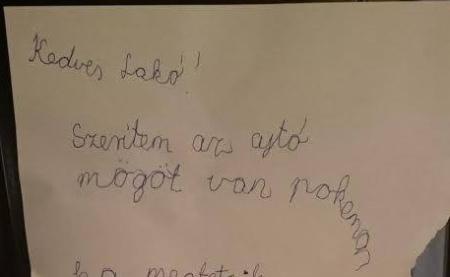 Kedves Lakó!!
Szeritem az ajtó
mögöt van pokemon
ha